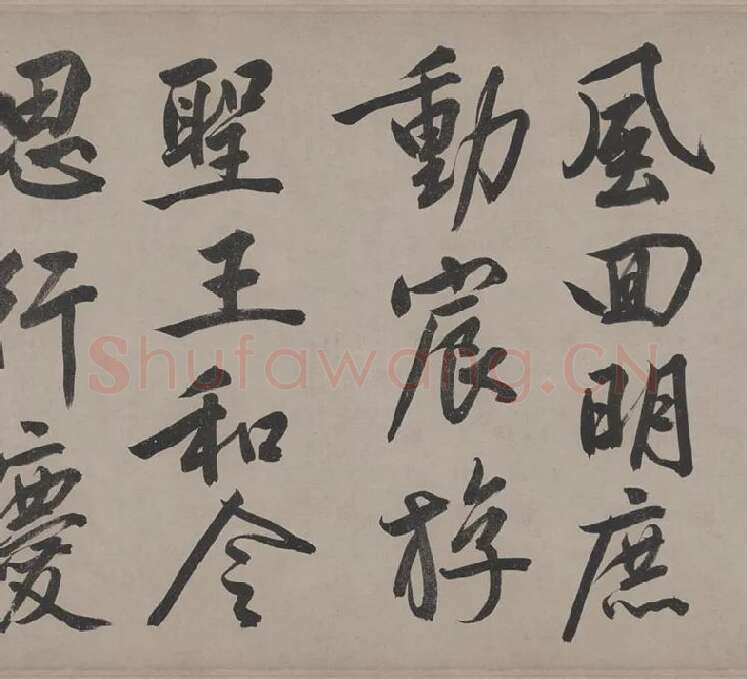 風回明庶
動宸斿
聖王和令
思行慶
Shufawang.CN